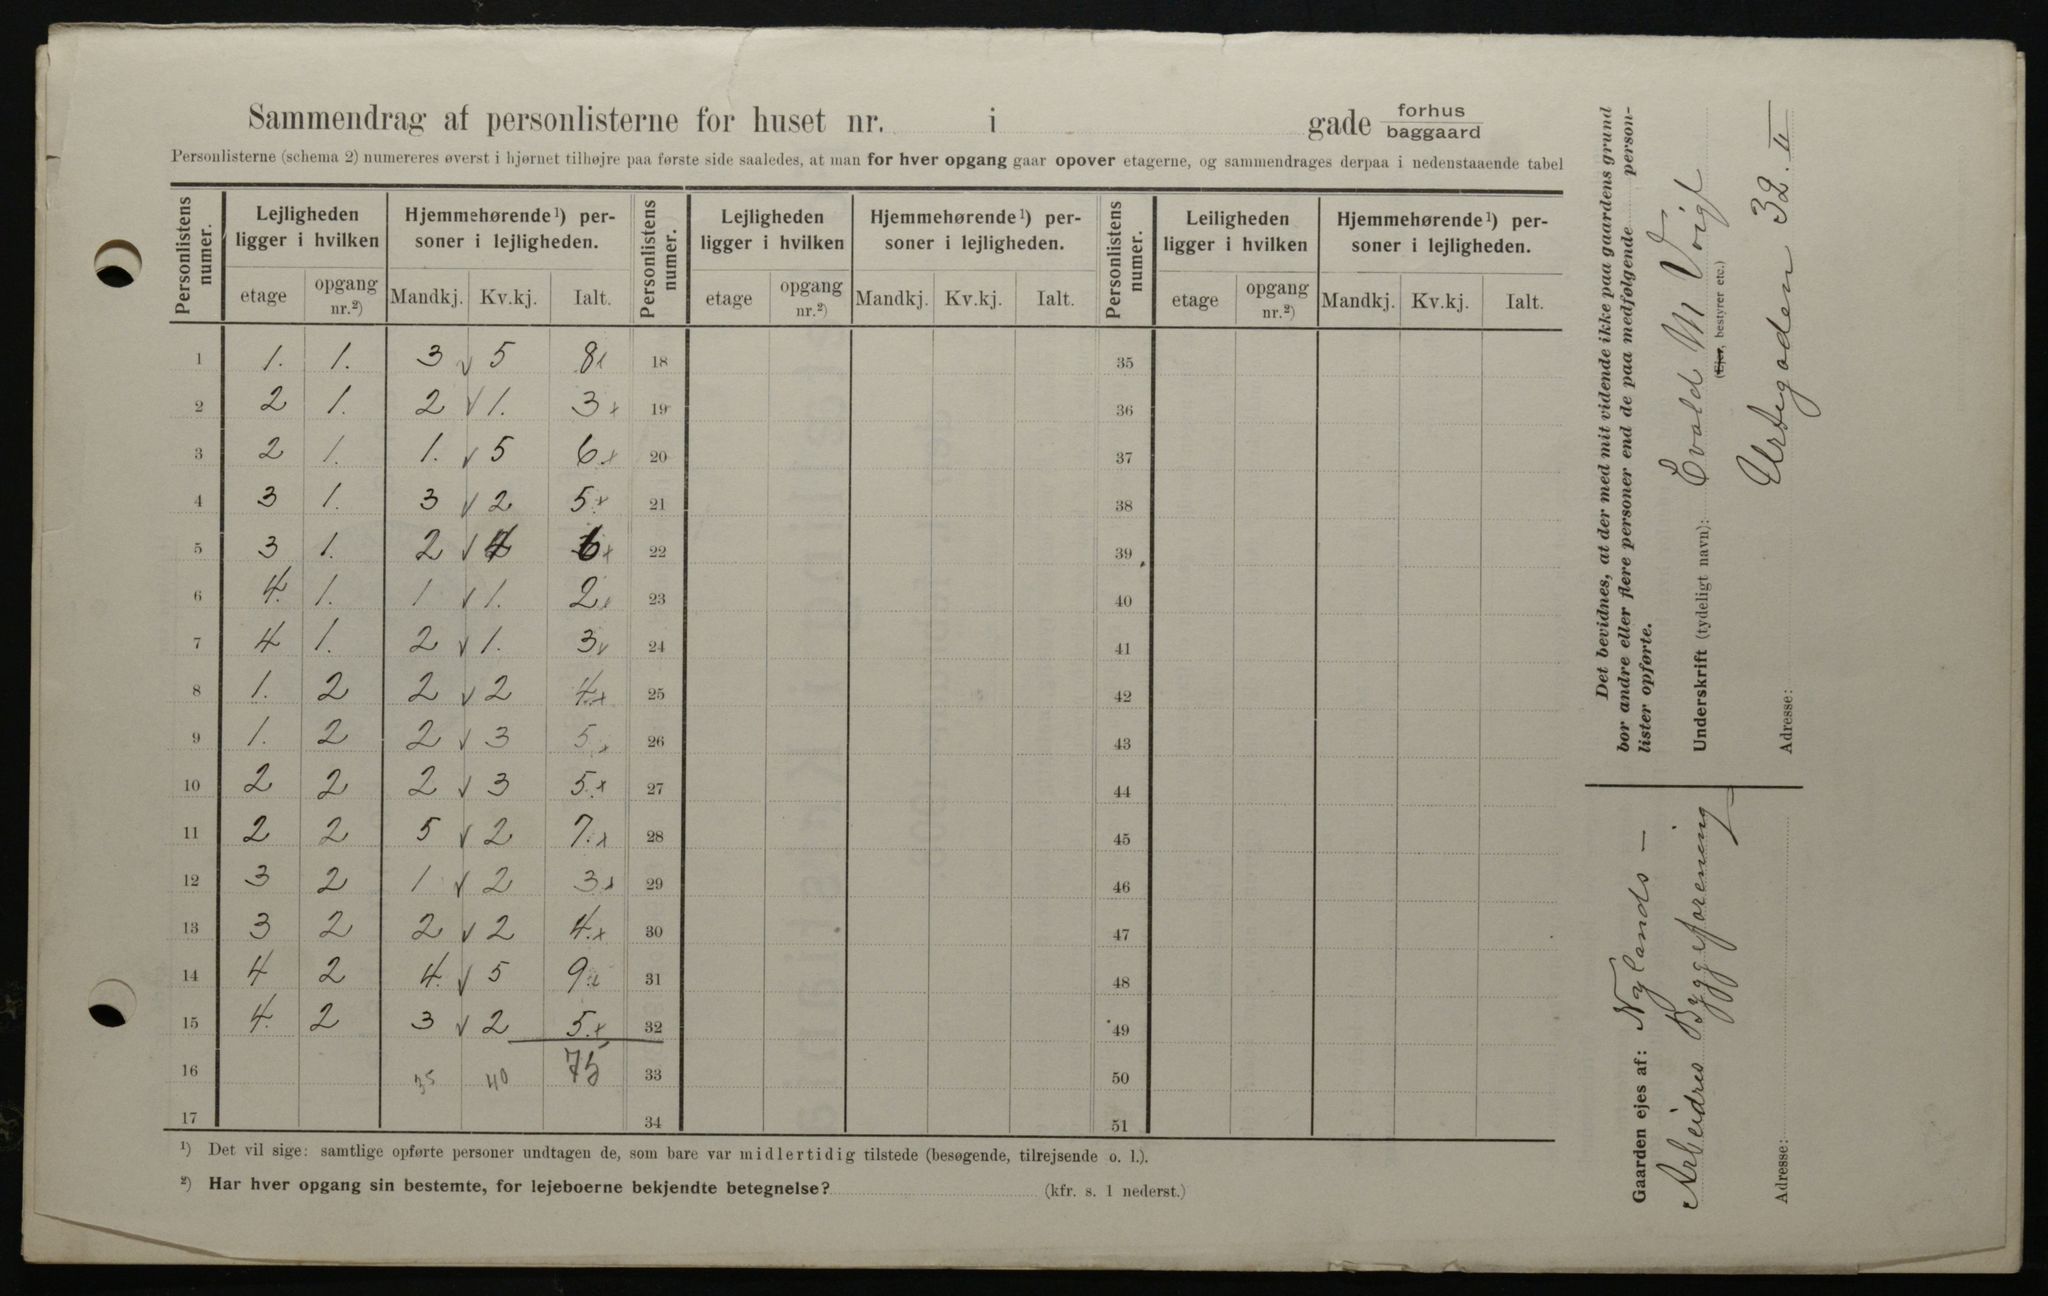 Sammendrag af personlisterne for huset nr. i gade forhus baggaard
Personlisterne (schema 2) numereres øverst i hjørnet tilhøjre paa første side saaledes, at man for hver opgang gaar opover etagerne, og sammendrages derpaa i nedenstaaende tabel
Personlistens numer. Lejligheden ligger i hvilken Hjemmehørende¹) personer i lejligheden. Personlistens numer. Lejligheden ligger i hvilken Hjemmehørende¹) personer i lejligheden. Personlistens numer. Leiligheden ligger i hvilken Hjemmehørende¹) personer i lejligheden.
etage opgang nr.²) Mandkj. Kv.kj. Ialt. etage opgang nr.²) Mandkj. Kv.kj. Ialt. etage opgang nr.²) Mandkj. Kv.kj. Ialt.
1 1. 1. 3 v 5 8 18 35
2 2 1. 2 v 1. 3 x 19 36
3 2 1. 1. v 5 6. x 20 37
4 3 1. 3 v 2 5. x 21 38
5 3 1. 2 v 4 6 x 22 39
6 4. 1. 1 v 1. 2 23 40
7 4 1. 2 v 1. 3 v 24 41
8 1. 2 2 v 2 4. x 25 42
9 1. 2 2 v 3 5. x 26 43
10 2 2 2 v 3 5. x 27 44
11 2 2 5 v 2 7. x 28 45
12 3 2 1 v 2 3 x 29 46
13 3 2 2 v 2 4. x 30 47
14 4 2 4. v 5 9. 31 48
15 4. 2 3 v 2 5. x 32 49
16 35 40 75 33 50
17 34 51
¹) Det vil sige: samtlige opførte personer undtagen de, som bare var midlertidig tilstede (besøgende, tilrejsende o. l.).
²) Har hver opgang sin bestemte, for lejeboerne bekjendte betegnelse? (kfr. s. 1 nederst.)
Det bevidnes, at der med mit vidende ikke paa gaardens grund
bor andre eller flere personer end de paa medfølgende person-
lister opførte.
Underskrift (tydeligt navn): Evald M Voigt
(Ejer, bestyrer etc.)
Adresse: Urtegaden 32. II
Gaarden ejes af: Nylands —
Arbeidres Byggeforening
Adresse: